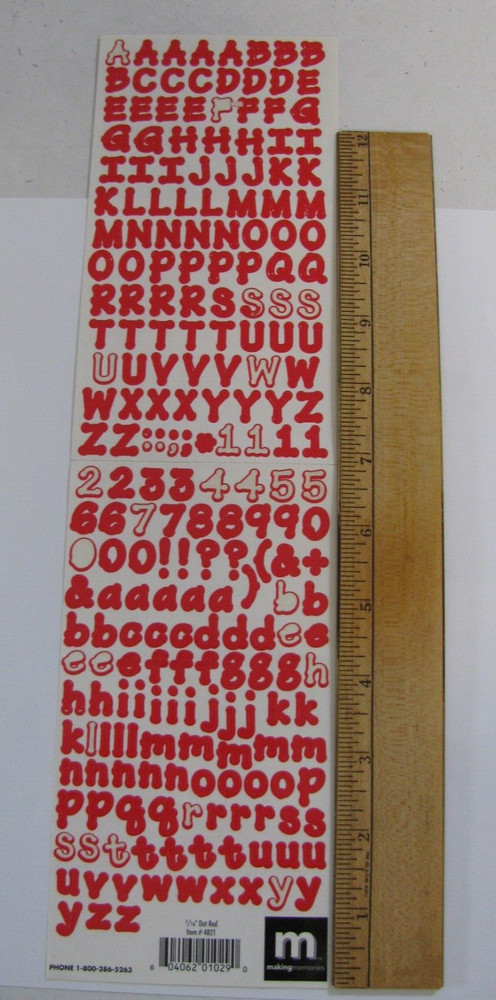 AAAAABBB
BCCCCDDDDE
EEEEEFFFG
GGHHHHII
IIIJJJKK
KLLLLMMM
MNNNNOOO
OOPPPPQQ
RRRRSSSS
TTTTTUUU
UUVVVWW
WXXXYYYZ
ZZ::;;*1111
22334455
667788990
000!!??(&+
&aaaaa)bb
bbcccdddee
eeefffgggh
hhiiiiijjjkk
kllllmmmmm
nnnnnoooop
ppqqrrrrss
sstttttuuu
uvvwwxxyy
yzz
7/16" Dot Red
Item # 4831
PHONE 1-800-286-5263
6 04062 01029 0
m
makingmemories
12
11
10
9
8
7
6
5
4
3
2
1